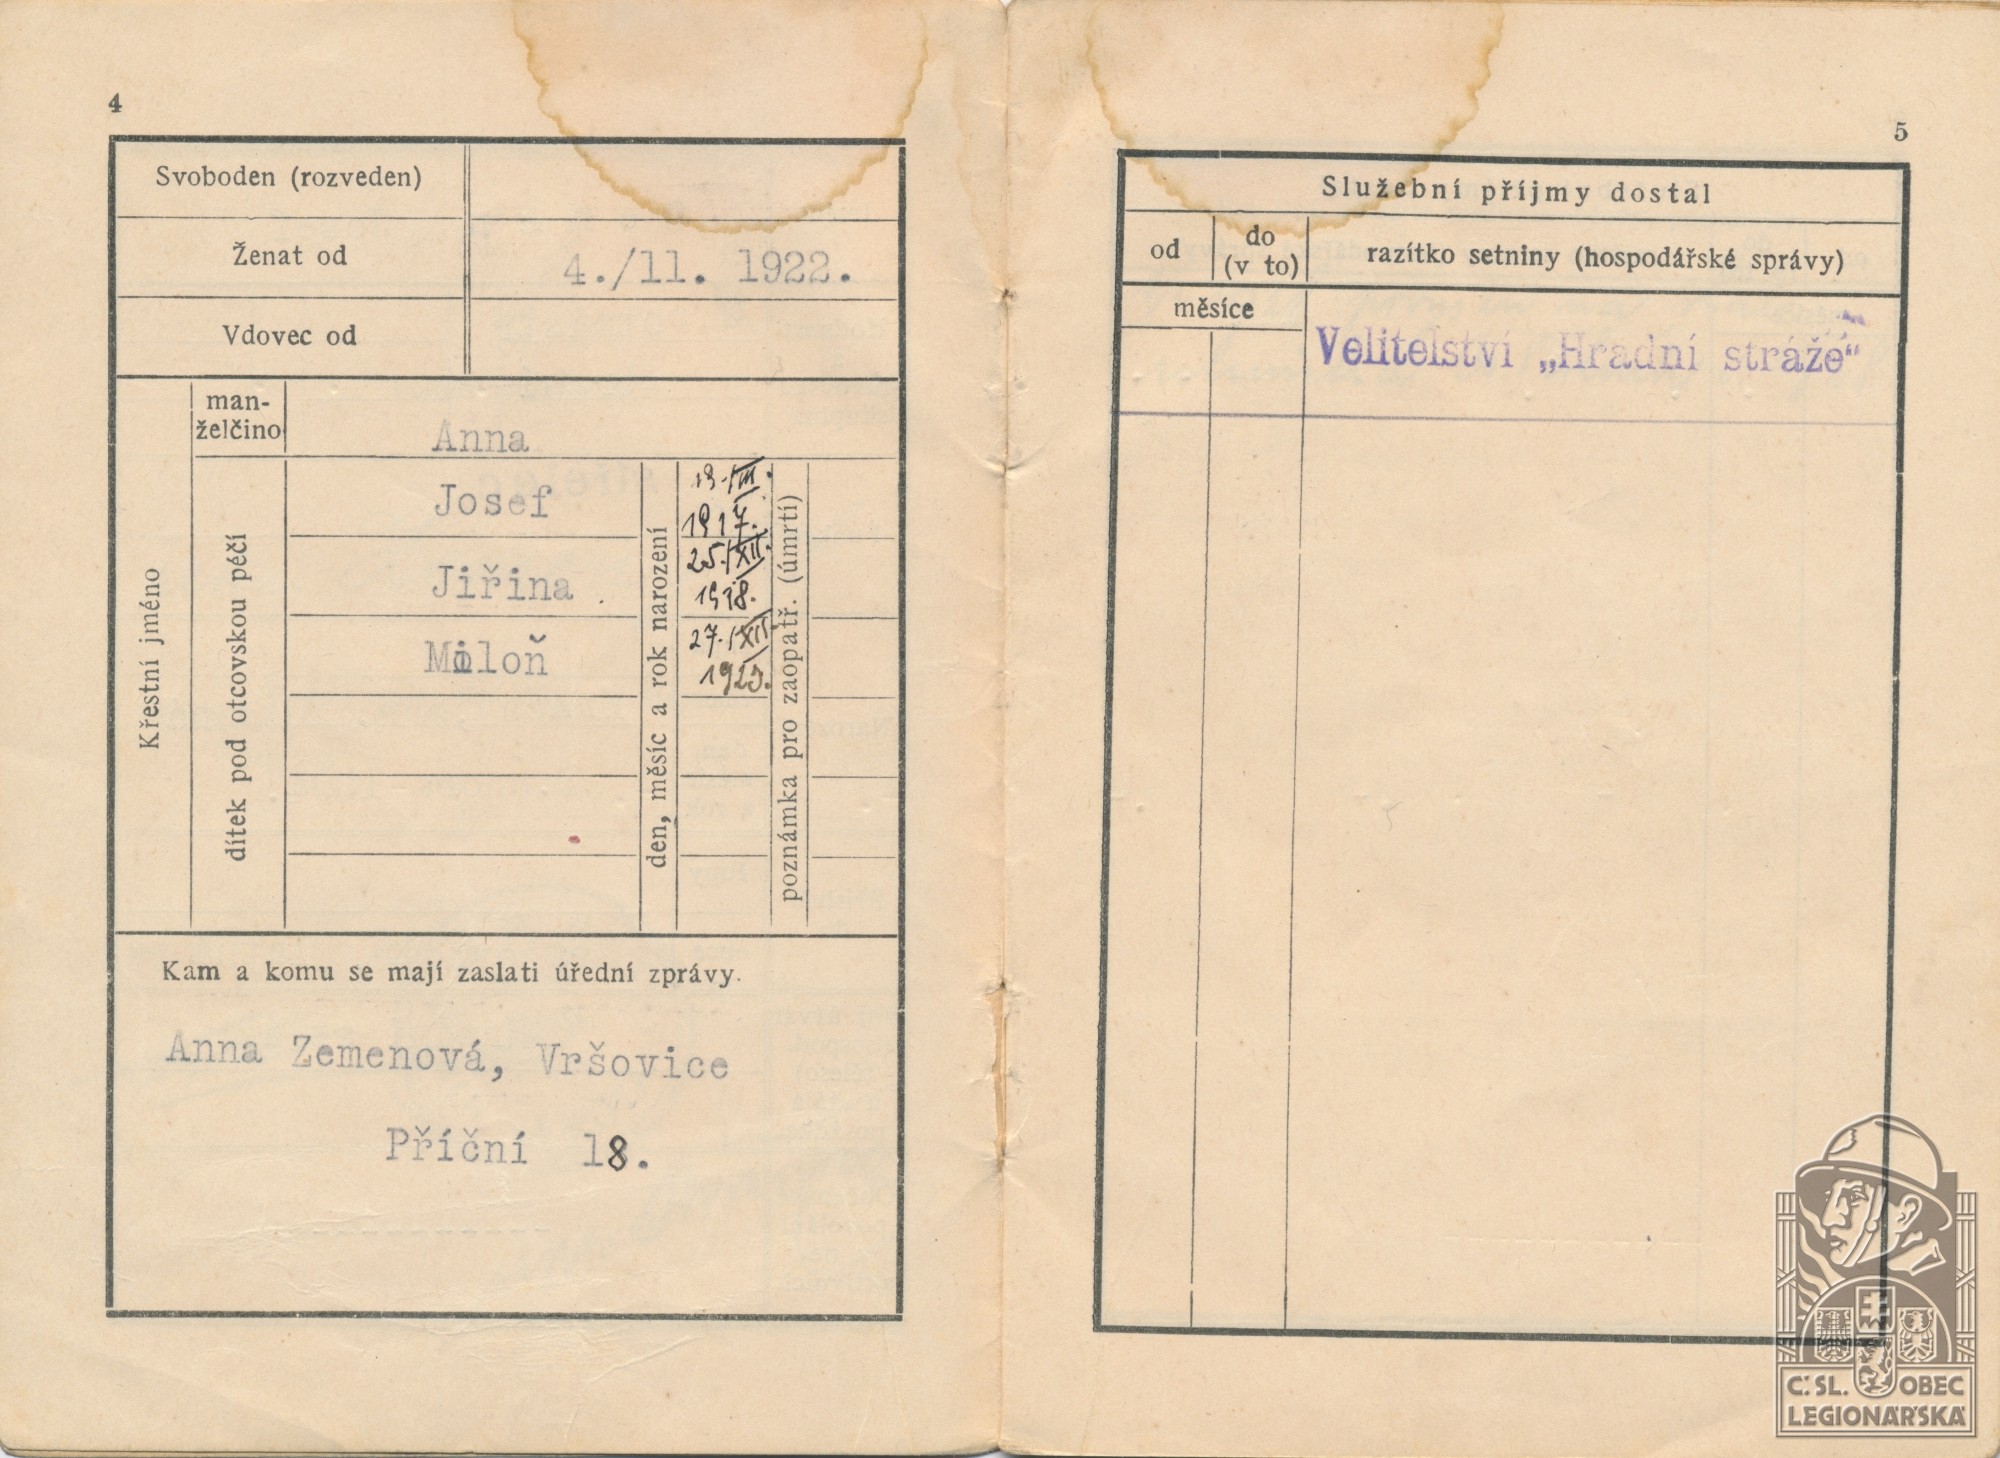 4
Svoboden (rozveden)
Ženat od
4./11. 1922.
Vdovec od
Křestní jméno
man-
želčino
Anna
dítek pod otcovskou péčí
Josef
Jiřina
Miloň
den, měsíc a rok narození
19./III.
1917.
25./XII.
1918.
27./XII.
poznámka pro zaopatř. (úmrtí)
Kam a komu se mají zaslati úřední zprávy.
Anna Zemenová, Vršovice
Příční 18.
5
Služební příjmy dostal
od
do
(v to)
razítko setniny (hospodářské správy)
měsíce
Velitelství „Hradní stráže“
Č. SL. OBEC
LEGIONÁŘSKÁ